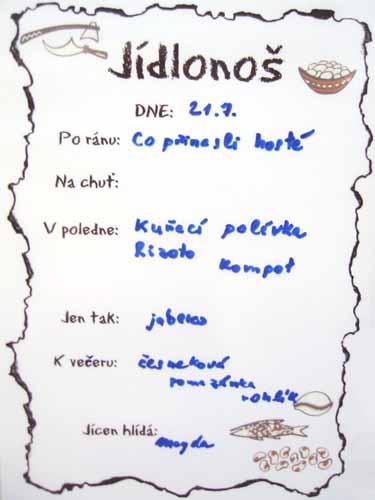 Jídlonoš
DNE: 21.7.
Po ránu: Co přinesli hosté
Na chuť:
V poledne: Kuřecí polívka
Rizoto
Kompot
Jen tak: jablko
K večeru: česneková
pomazánka
rohlík
Jícen hlídá:
magda